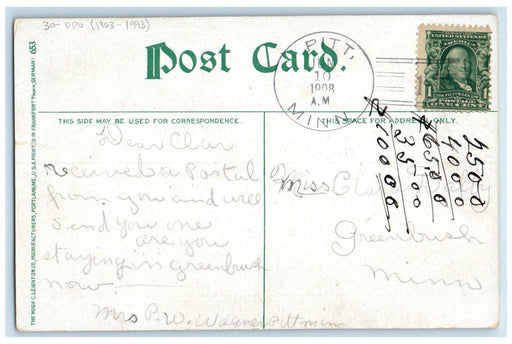 30-DPO (1903-1993)
Post Card.
PITT,
JUN
10
1908
A.M.
MINN.
UNITED STATES OF AMERICA
1
POSTAGE
ONE CENT
THIS SIDE MAY BE USED FOR CORRESPONDENCE.
THIS SPACE FOR ADDRESS ONLY.
Dear Clar
received a Postal
from you and will
send you one
are you
staying in Greenbush
now
Mrs P. W. Wagner Pitt Minn
Miss
Greenbush
Minn
4000
65.00
35 00
THE HUGH C. LEIGHTON CO., MANUFACTURERS, PORTLAND, ME., U.S.A. PRINTED IN FRANKFORT O/MAIN, GERMANY.
653